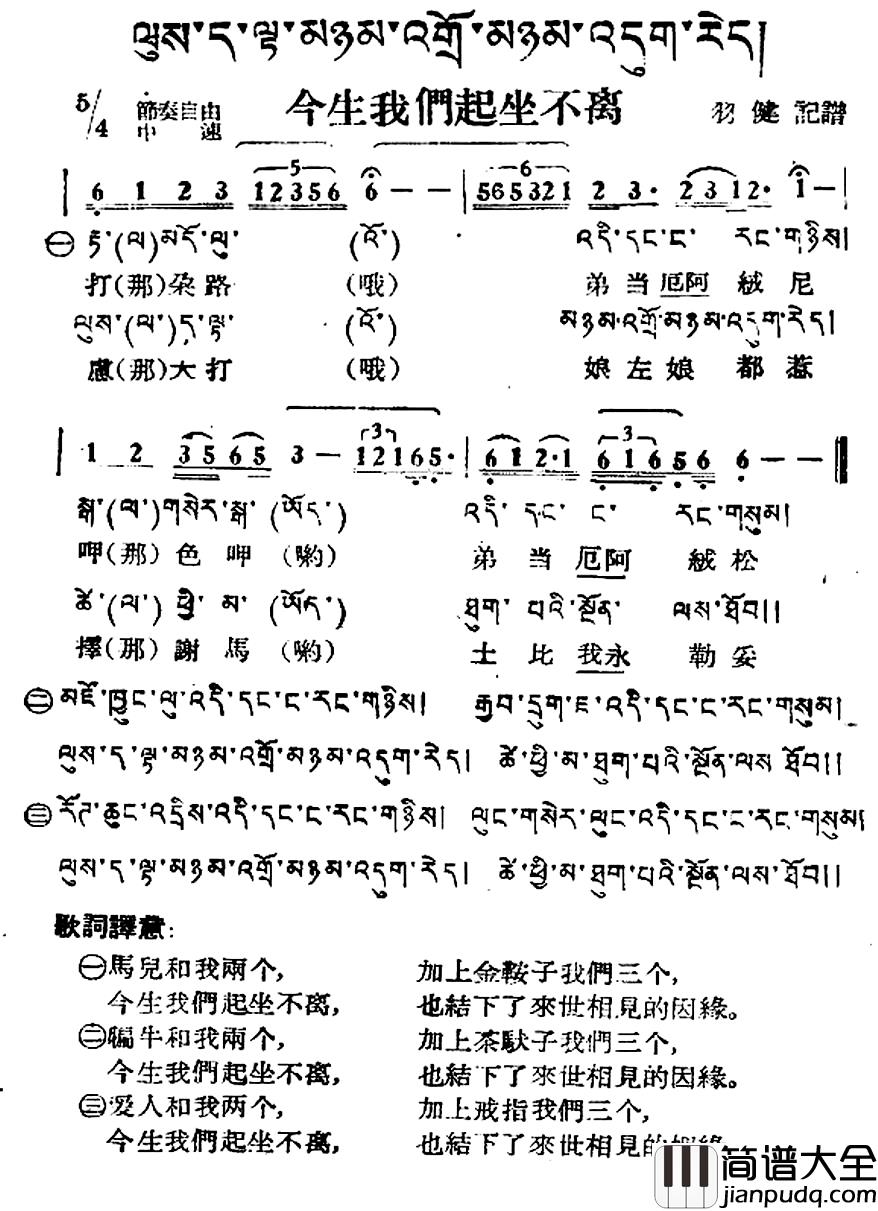 ལུས་ད་ལྟ་མཉམ་འགྲོ་མཉམ་འདུག་རེད།
5/4 節奏自由 中速 今生我們起坐不离 羽健記譜
6 1 2 3 12356 6 - - | 565321 2 3· 23 12· 1 - |
㊀ རྟ་(ལ)མདོ་ལུ་ (འོ་) འདི་དང་ང་ རང་གཉིས།
打(那)朶路 (哦) 弟當厄阿絨尼
ལུས་(ལ་)ད་ལྟ་ (འོ་) མཉམ་འགྲོ་མཉམ་འདུག་རེད།
慮(那)大打 (哦) 娘左娘都惹
| 1 2 35 65 3 - 12165· | 61 2·1 616 56 6 - - ‖
སྒ་(ལ་)གསེར་སྒ་ (ཨོད་) འདི་ དང་ ང་ རང་གསུམ།
呷(那)色呷 (喲) 弟當厄阿絨松
ཚེ་(ལ་) ཕྱི་ མ་ (ཨོད་) ཐུག་ པའི་སྔོན་ ལས་ཐོབ།།
擇(那)謝馬 (喲) 土比我永勒妥
㊁ མཛོ་ཁྱུང་ལུ་འདི་དང་ང་རང་གཉིས། རྒྱབ་དྲུག་ཇ་འདི་དང་ང་རང་གསུམ།
ལུས་ད་ལྟ་མཉམ་འགྲོ་མཉམ་འདུག་རེད། ཚེ་ཕྱི་མ་ཐུག་པའི་སྔོན་ལས་ཐོབ།།
㊂ རོཊ་ཆུང་འདྲིས་འདི་དང་ང་རང་གཉིས། ལུང་གསེར་ལུང་འདི་དང་ང་རང་གསུམ།
ལུས་ད་ལྟ་མཉམ་འགྲོ་མཉམ་འདུག་རེད། ཚེ་ཕྱི་མ་ཐུག་པའི་སྔོན་ལས་ཐོབ།།
歌詞譯意:
㊀馬兒和我兩个, 加上金鞍子我們三个,
今生我們起坐不离, 也結下了來世相見的因緣。
㊁犏牛和我兩个, 加上茶馱子我們三个,
今生我們起坐不离, 也結下了來世相見的因緣。
㊂爱人和我两个, 加上戒指我們三个,
今生我們起坐不离, 也結下了來世相見的因緣
简谱大全
jianpudq.com